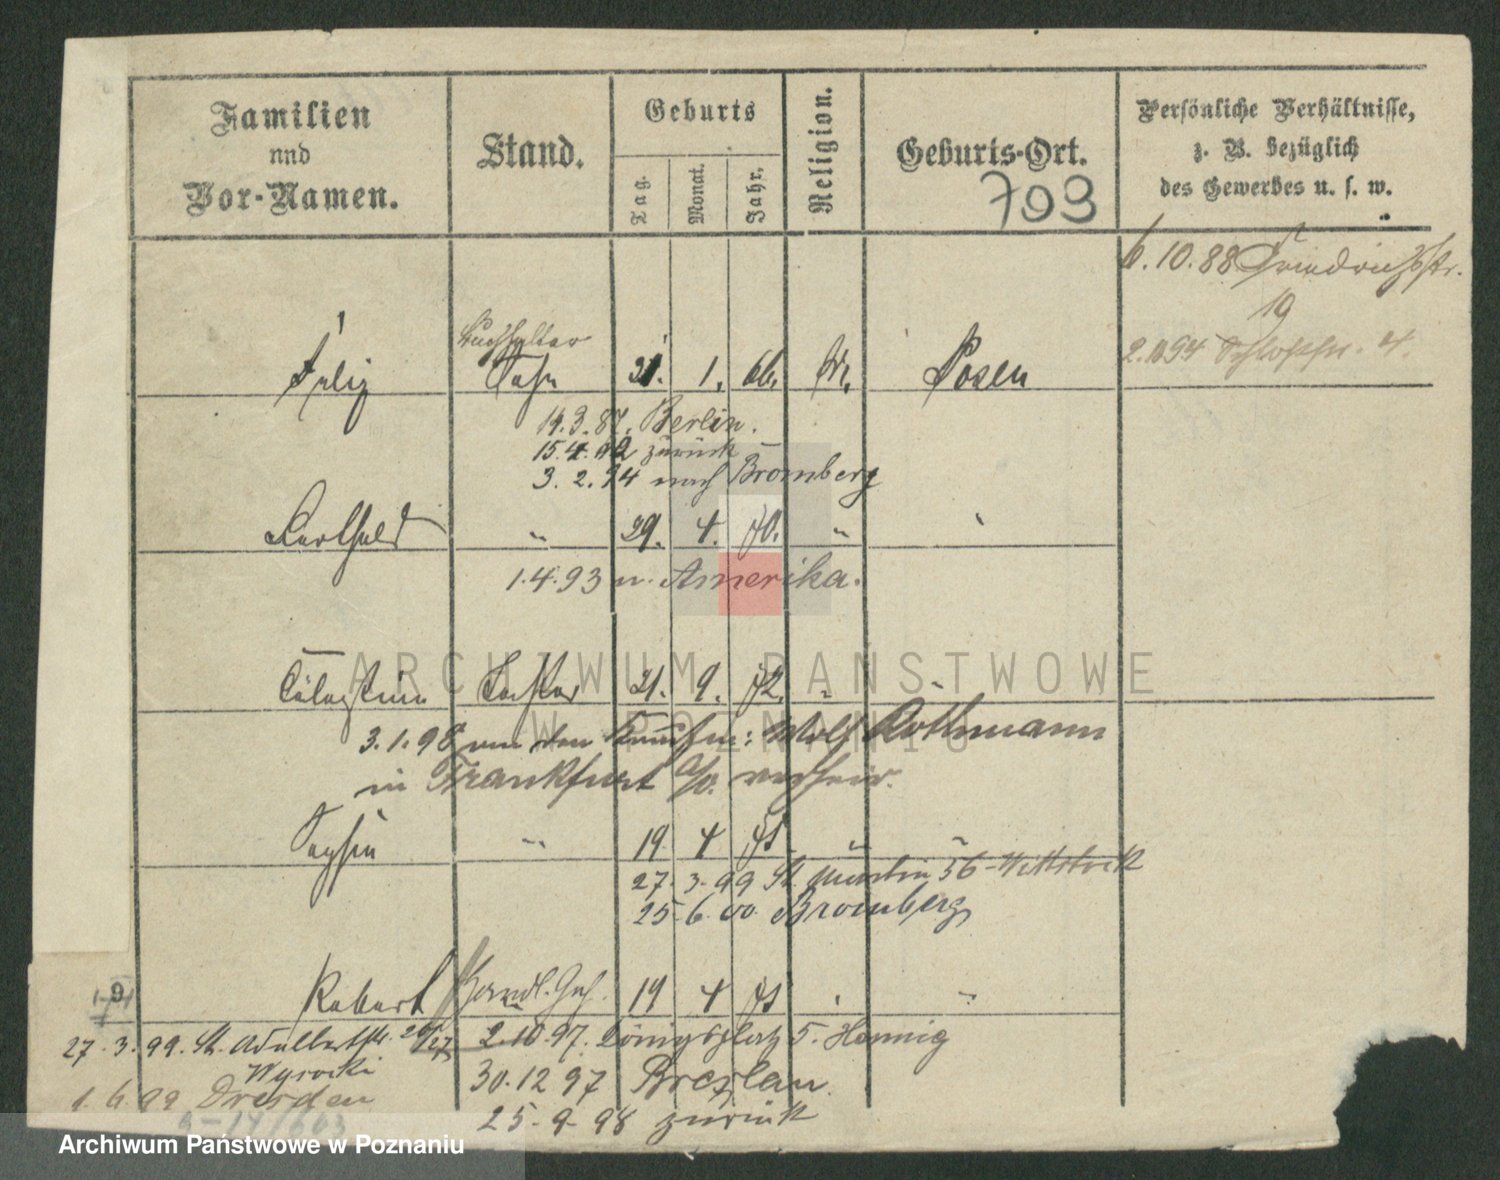 Familien
und
Vor-Namen.
Stand.
Geburts
Tag.
Monat.
Jahr.
Religion.
Geburts-Ort.
793
Persönliche Verhältnisse,
z. B. bezüglich
des Gewerbes u. s. w.
6.10.88 Friedrichstr.
19
2. 94 Schloßstr. 4.
Buchhalter
Felix Sohn 31. 1. 66. Posen
14.3.87. Berlin.
15.4.92 zurück
3.2.94 nach Bromberg
Berthold " 29. 4. 70. " "
1.4.93 n. Amerika.
Cölestine Tochter 21. 9. 72. "
3.1.98 den Kaufm: Wolf Rothmann
in Frankfurt a/O. verheir.
" 19 4 75 " "
27.3.99 St. Martin 56 Wittstock
25.6.00. Bromberg
Robert Handl. Geh. 19 4 75 " "
27.3.99. St. Adalbertstr. 26/27
Wyrocki
1.6.99 Dresden
2.10.97. Königsplatz 5. Hennig
30.12 97 Breslau
25.9.98 zurück
ARCHIWUM PAŃSTWOWE
W POZNANIU
Archiwum Państwowe w Poznaniu